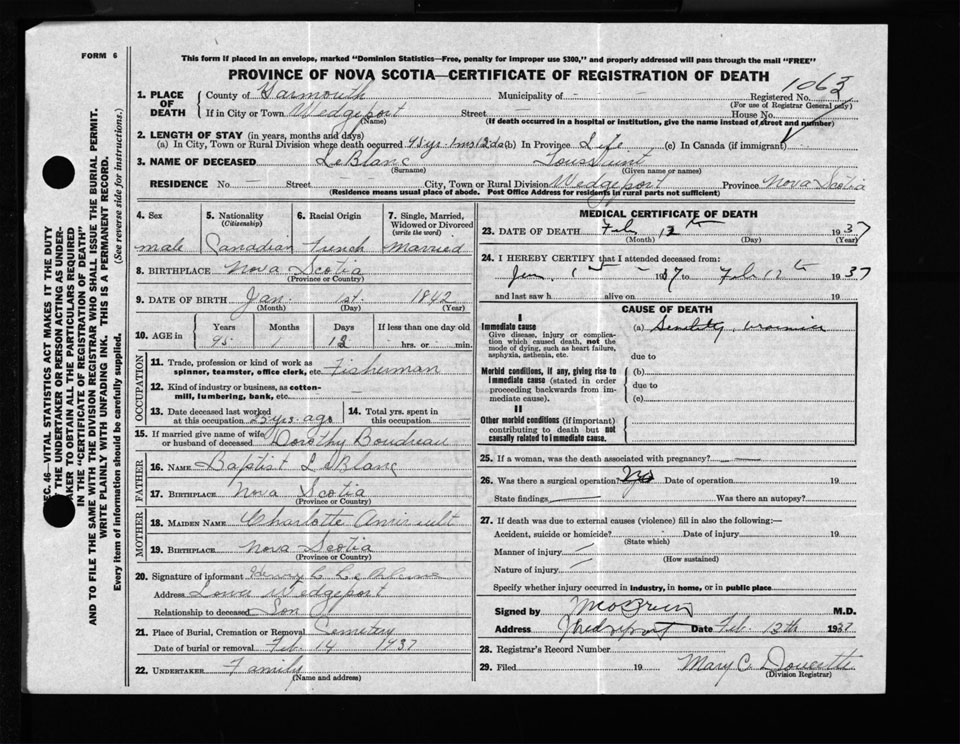 FORM 6
This form if placed in an envelope, marked "Dominion Statistics—Free, penalty for improper use $300," and properly addressed will pass through the mail "FREE"
PROVINCE OF NOVA SCOTIA—CERTIFICATE OF REGISTRATION OF DEATH
SEC. 46—VITAL STATISTICS ACT MAKES IT THE DUTY
OF THE UNDERTAKER OR PERSON ACTING AS UNDER-
TAKER TO OBTAIN ALL THE PARTICULARS REQUIRED
IN THE "CERTIFICATE OF REGISTRATION OF DEATH"
AND TO FILE THE SAME WITH THE DIVISION REGISTRAR WHO SHALL ISSUE THE BURIAL PERMIT.
WRITE PLAINLY WITH UNFADING INK. THIS IS A PERMANENT RECORD.
Every item of information should be carefully supplied. (See reverse side for instructions.)
1. PLACE OF DEATH County of Yarmouth Municipality of Registered No. 1063
(For use of Registrar General only)
If in City or Town Wedgeport Street House No.
(Name) (If death occurred in a hospital or institution, give the name instead of street and number)
2. LENGTH OF STAY (in years, months and days)
(a) In City, Town or Rural Division where death occurred (b) In Province Life (c) In Canada (if immigrant)
3. NAME OF DECEASED LeBlanc Toussaint
(Surname) (Given name or names)
RESIDENCE No. Street City, Town or Rural Division Wedgeport Province Nova Scotia
(Residence means usual place of abode. Post Office Address for residents in rural parts not sufficient)
4. Sex 5. Nationality (Citizenship) 6. Racial Origin 7. Single, Married, Widowed or Divorced (write the word)
male Canadian French Married
8. BIRTHPLACE Nova Scotia
(Province or Country)
9. DATE OF BIRTH Jan. 1st. 1842
(Month) (Day) (Year)
10. AGE in Years Months Days If less than one day old
95 1 12 hrs. or min.
OCCUPATION
11. Trade, profession or kind of work as spinner, teamster, office clerk, etc. Fisherman
12. Kind of industry or business, as cotton-mill, lumbering, bank, etc.
13. Date deceased last worked at this occupation 25 yrs. ago 14. Total yrs. spent in this occupation
15. If married give name of wife or husband of deceased Dorothy Boudreau
FATHER
16. NAME Baptist LeBlanc
17. BIRTHPLACE Nova Scotia
(Province or Country)
MOTHER
18. MAIDEN NAME Charlotte
19. BIRTHPLACE Nova Scotia
(Province or Country)
20. Signature of informant
Address Lower Wedgeport
Relationship to deceased Son
21. Place of Burial, Cremation or Removal Cemetery
Date of burial or removal Feb. 14 1937
22. UNDERTAKER Family
(Name and address)
MEDICAL CERTIFICATE OF DEATH
23. DATE OF DEATH Feb 12th 1937
(Month) (Day) (Year)
24. I HEREBY CERTIFY that I attended deceased from:
Jan 1st 1937 to Feb 12th 1937
and last saw h alive on 19
CAUSE OF DEATH
I
Immediate cause
Give disease, injury or complication which caused death, not the mode of dying, such as heart failure, asphyxia, asthenia, etc.
(a) Senility,
due to
Morbid conditions, if any, giving rise to immediate cause (stated in order proceeding backwards from immediate cause).
(b)
due to
(c)
II
Other morbid conditions (if important) contributing to death but not causally related to immediate cause.
25. If a woman, was the death associated with pregnancy?
26. Was there a surgical operation? No Date of operation 19
State findings Was there an autopsy?
27. If death was due to external causes (violence) fill in also the following:—
Accident, suicide or homicide? Date of injury 19
(State which)
Manner of injury
(How sustained)
Nature of injury
Specify whether injury occurred in industry, in home, or in public place
Signed by M.D.
Address Wedgeport Date Feb. 13th 1937
28. Registrar's Record Number
29. Filed 19 Mary C. Doucette
(Division Registrar)